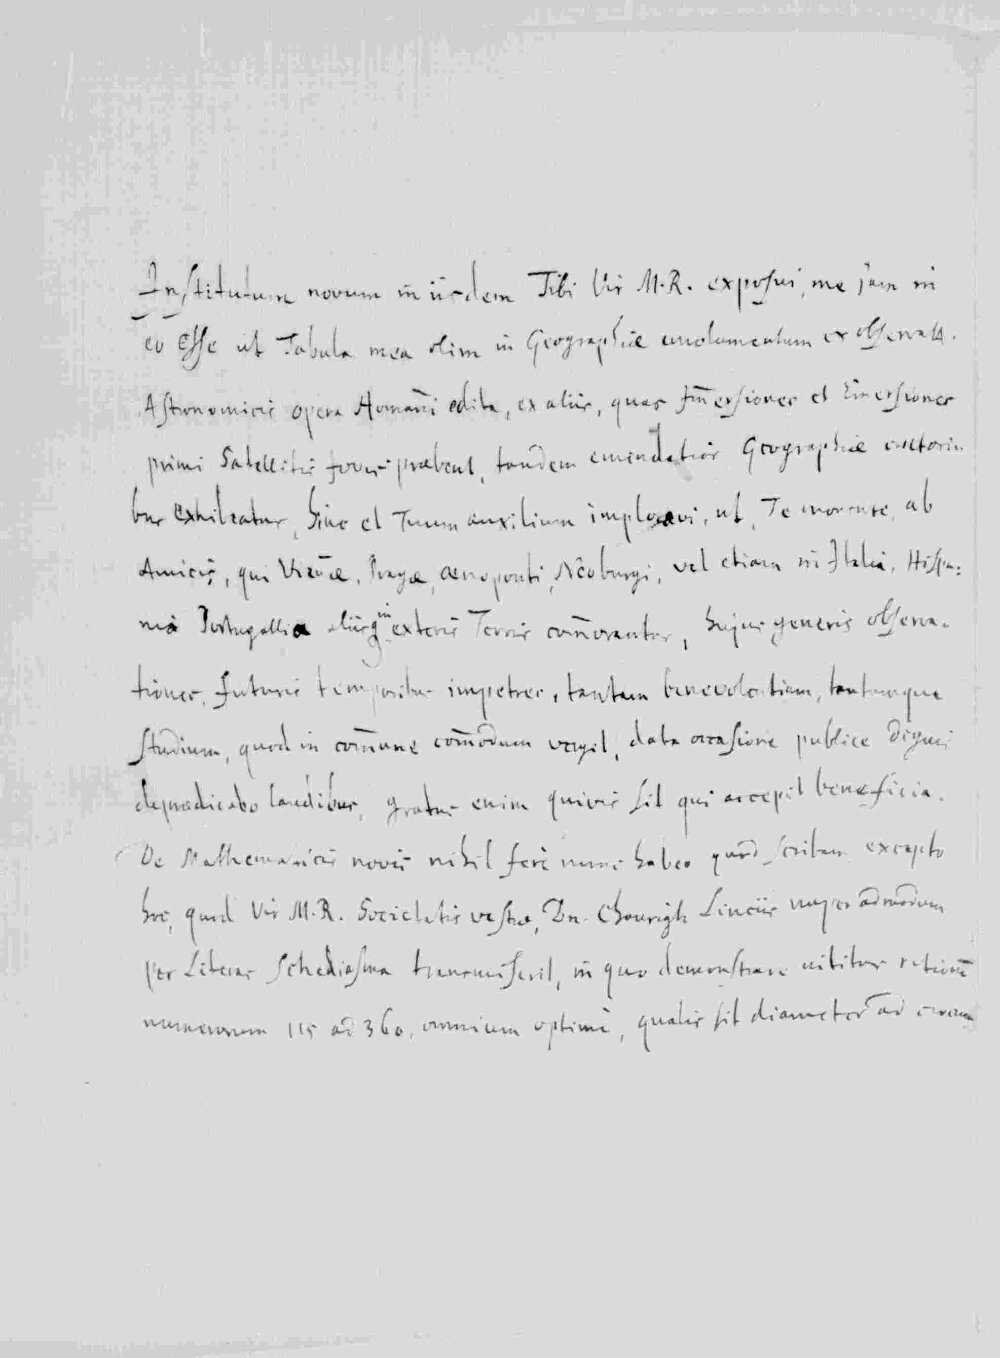 Institutum novum in iisdem Tibi Vir M.R. exposui, me jam in
eo Esse ut Tabula mea olim in Geographiæ emolumentum ex observatt.
Astronomicis opera Homañi edita, ex aliis, quas Im̃ersiones et Emersiones
primi Satellitis Jovis præbent, tandem emendatior Geographiæ cultorib
bus Exhibeatur, hinc et Tuum auxilium imploravi, ut, Te monente, ab
Amicis, qui Vieñæ, Pragæ, Oenoponti, Neoburgi, vel etiam in Italia, Hispa=
nia Portugallia aliisq in exteris Terris com̃orantur, hujus generis observa-
tiones, futuris temporibus impetres, tantam benevolentiam, tantumque
studium, quod in com̃une com̃odum vergit, data occasione publice dignis
deprædicabo laudibus, gratus enim quivis sit qui accepit beneficia.
De Mathematicis novis nihil fere nunc habeo quod scribam excepto
hoc, quod Vir M.R. Societatis vestræ, Dn. Linciis nuper admodum
per Literas Schediasma transmiserit, in quo demonstrare nititur rationẽ
numerorum 115 ad 360, omnium optime, qualis sit diametes ad circum